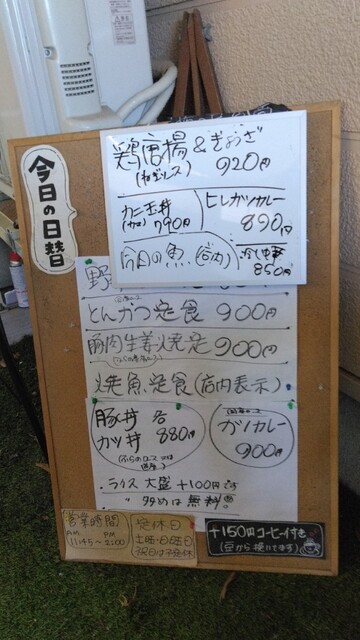 今日の日替
鶏唐揚&ぎょうざ
920円
カニ玉丼
790円
ヒレカツカレー
890円
今日の魚.(店内)
冷し中華
850円
野
とんかつ定食 900円
豚肉生姜焼定 900円
焼魚.定食(店内表示)
豚丼 各
カツ丼 880円
カツカレー
900円
・ライス 大盛 +100円です
・少なめは無料
営業時間
AM PM
11:45〜2:00
定休日
土曜・日曜日
祝日は予定休
+150円コーヒー付き
(豆から挽いてます)